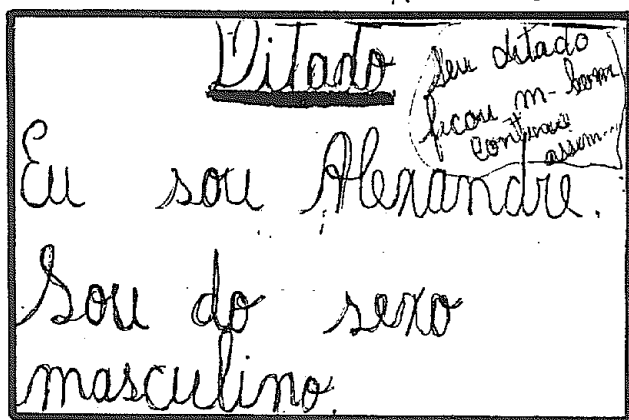 Ditado
Seu ditado
ficou m-bom
continue
assim...
Eu sou Alexandre.
Sou do sexo
masculino.